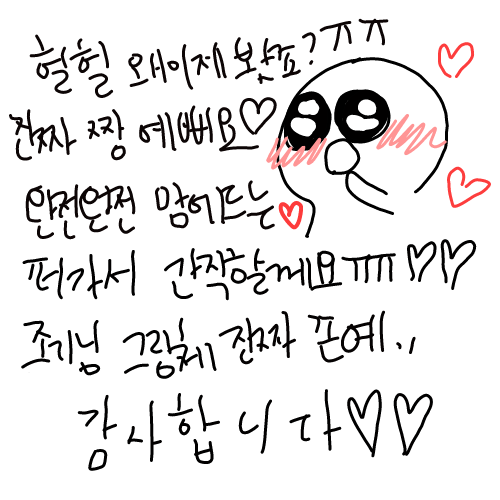 헐헐 왜이제 봤죠?ㅠㅠ
진짜 짱 예뻐요♡
완전완전 맘에드는
퍼가서 간직할께요ㅠㅠ♡♡
조기님 그림체 진짜 쪼예..
감사합니다♡♡